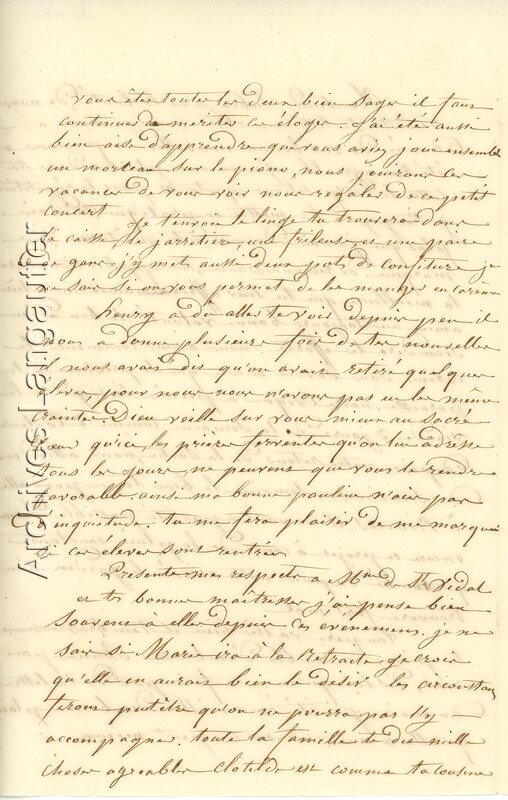 vous êtes toutes les deux bien sages il faut
continuer de meriter ces éloges. J'ai été aussi
bien aise d'apprendre que vous aviez joué ensemble
un morceau sur le piano, nous jouirons ces
vacances de vous voir nous regaler de ce petit
concert
Je t'envoie le linge tu trouvera dans
la caisse, te jarretière, une frileuse, et une paire
de gans j'y mets aussi deux pots de confiture je
ne sais si on vous permet de les manger en carême
henry a dû aller te voir depuis peu il
nous a donné plusieurs fois de tes nouvelles
il nous avais dis qu'on avais retiré quelques
eleves, pour nous nous n'avons pas eu les même
craintes. Dieu veille sur vous mieux au Sacré
Cœur qu'ici, les prieres ferventes qu'on lui adresse
tous les jours, ne peuvent que vous le rendre
favorable, ainsi ma bonne pauline n'aie pas
d'inquietude. tu me fera plaisir de me marquer
si ces éleves sont rentrées
Presente mes respects a Mme de St Vidal
et tes bonne maîtresses j'ai pensé bien
souvent à elles depuis ces evenemens. je ne
sais si Marie ira à la retraite je crois
qu'elle en aurais bien le désir. les circonstan
ferons putêtre qu'on ne pourra pas l'y
accompagne. toute la famille te dis mille
choses agreables Clotilde est comme ta cousine
Archives Langautier